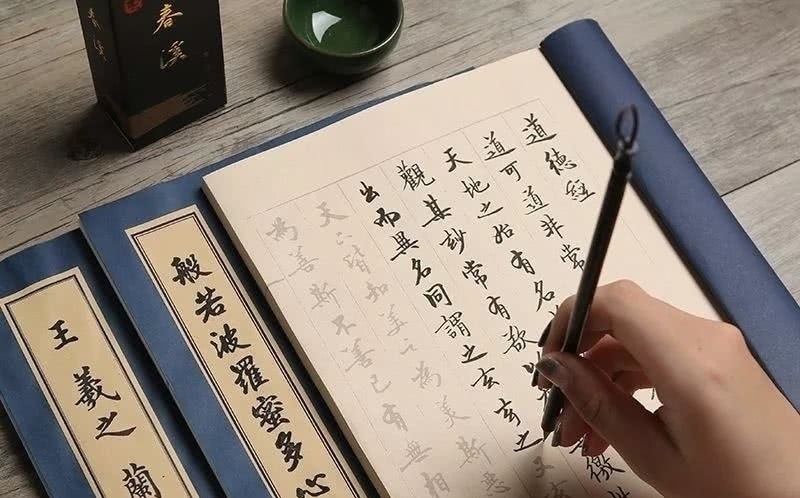 道德經
道可道非常
天地之始有名
觀其妙常有欲以
徼
出而異名同謂之玄玄之
天下皆知美之為美斯惡
為善斯不善已有無相
般若波羅蜜多心
王羲之蘭
春溪